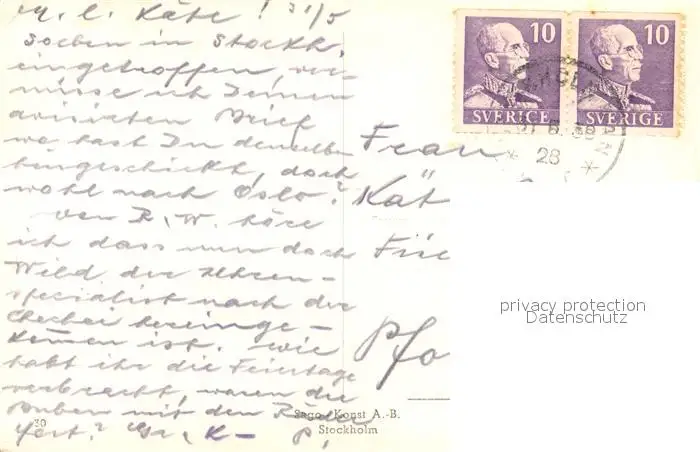 M. l. Käte! 31/5
Soeben in Stockh.
eingetroffen, ver-
misse ich Deinen
avisierten Brief
wo hast Du denselben
hingeschickt, doch
wohl nach Oslo?
Von R. W. höre
ich dass nun doch
Wild der Uhren-
spezialist nach der
hereinge-
kommen ist. Wie
habt ihr die Feiertage
verbracht, waren die
Buben mit den Räder
fort? Gr. K- P.
10 10
SVERIGE SVERIGE
28
Frau
Kät
Fie
Pfo
privacy protection
Datenschutz
30
Sago-Konst A.-B.
Stockholm